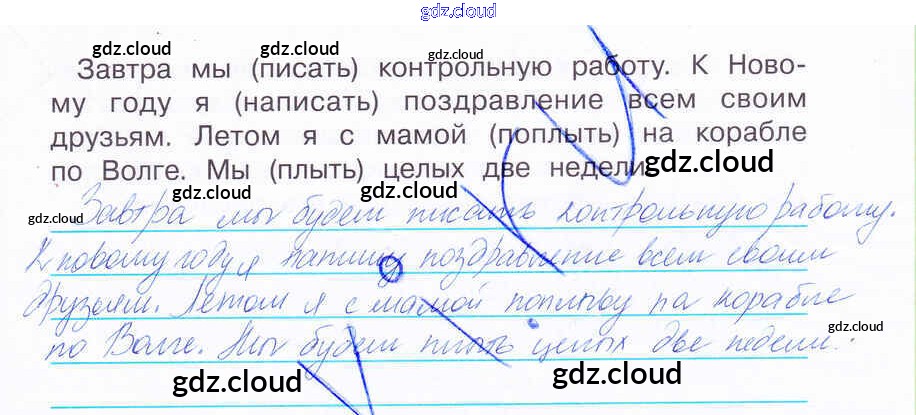 gdz.cloud
gdz.cloud gdz.cloud gdz.cloud
Завтра мы (писать) контрольную работу. К Ново-
му году я (написать) поздравление всем своим
друзьям. Летом я с мамой (поплыть) на корабле
по Волге. Мы (плыть) целых две недели.
gdz.cloud gdz.cloud gdz.cloud
gdz.cloud
Завтра мы будем писать контрольную работу.
К новому году я напишу поздравление всем своим
друзьям. Летом я с мамой поплыву на корабле
gdz.cloud
по Волге. Мы будем плыть целых две недели.
gdz.cloud gdz.cloud